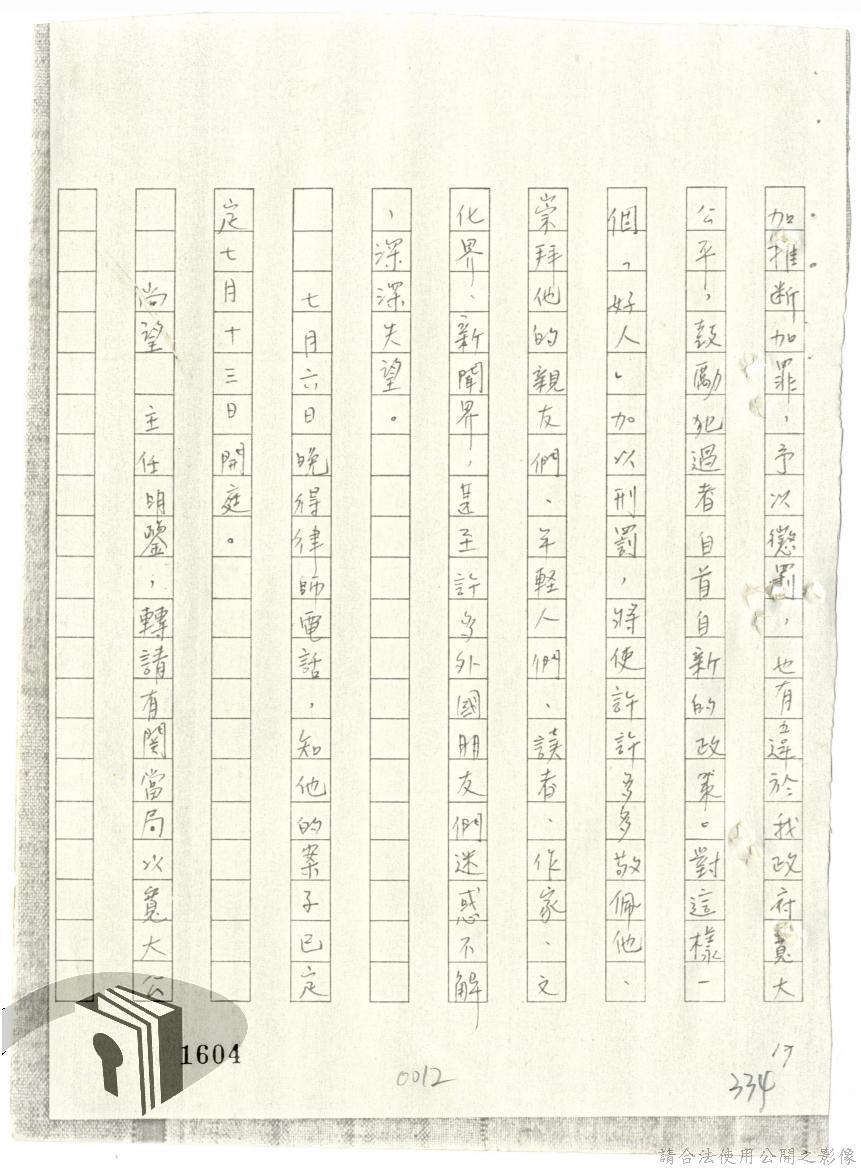 加推斷加罪，予以懲罰，也有違於我政府寬大
公平，鼓勵犯過者自首自新的政策。對這樣一
個「好人」加以刑罰，將使許許多多敬佩他、
崇拜他的親友們、年輕人們、讀者、作家、文
化界、新聞界，甚至許多外國朋友們迷惑不解
，深深失望。
七月六日晚得律師電話，知他的案子已定
定七月十三日開庭。
尚望　主任明鑒，轉請有関當局以寬大公
1604
0012
334
17
請合法使用公開之影像